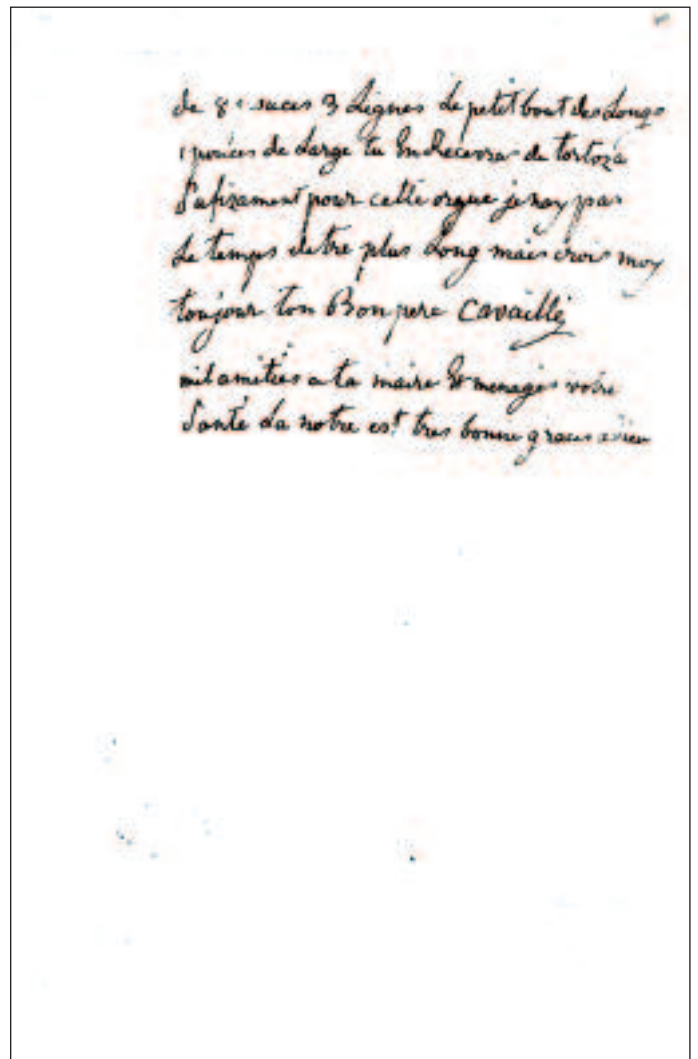 de 8 pouces 3 Lignes Le petit bout des Longs
1 pouces de Large tu En Recevras de tortoza
Sufizament pour cette orgue je nay pas
Le temps detre plus Long mais crois moy
toujour ton Bon pere Cavaillé
mil amities a ta maire Et menagés votre
Santé La notre est tres bonne graces a dieu